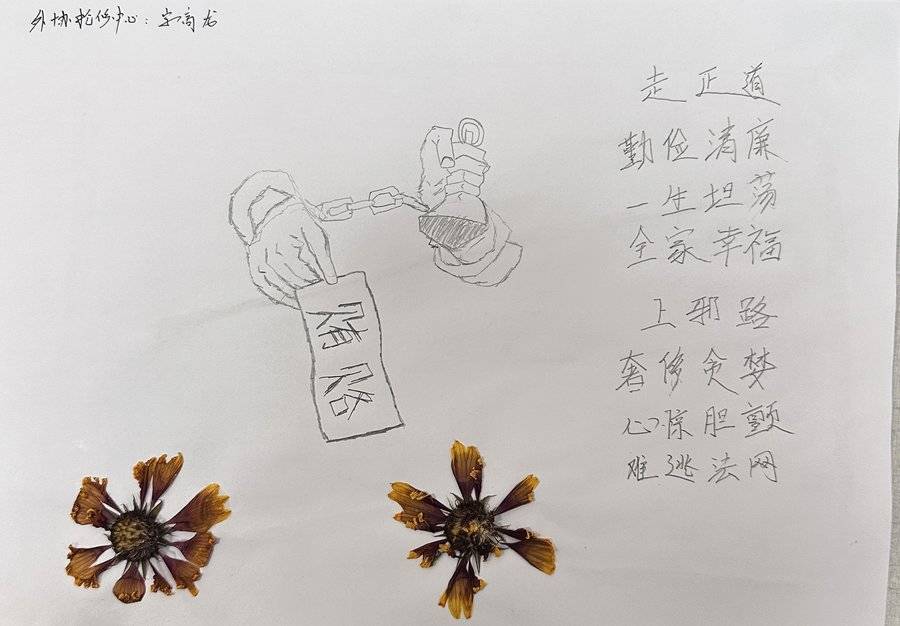 外协抢修中心：宋高龙
走正道
勤俭清廉
一生坦荡
全家幸福
上邪路
奢侈贪婪
心惊胆颤
难逃法网
贿赂